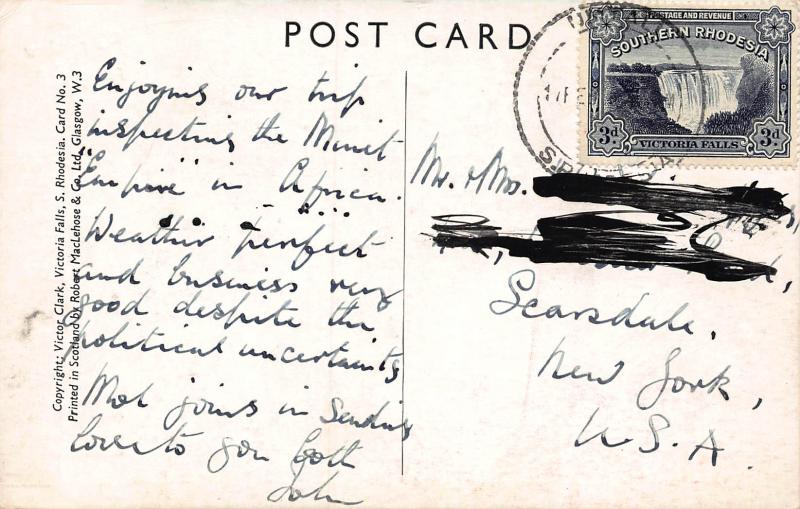 POST CARD
POSTAGE AND REVENUE
SOUTHERN RHODESIA
3d 3d
VICTORIA FALLS
Copyright: Victor Clark, Victoria Falls, S. Rhodesia. Card No. 3
Printed in Scotland by Robert MacLehose & Co. Ltd., Glasgow, W.3
Enjoying our trip
inspecting the Minit
"Empire" in Africa.
Weather perfect
and business very
good despite the
political uncertainty
joins in sending
love to you both
John
Mr. & Mrs.
Scarsdale,
New York,
U.S.A.